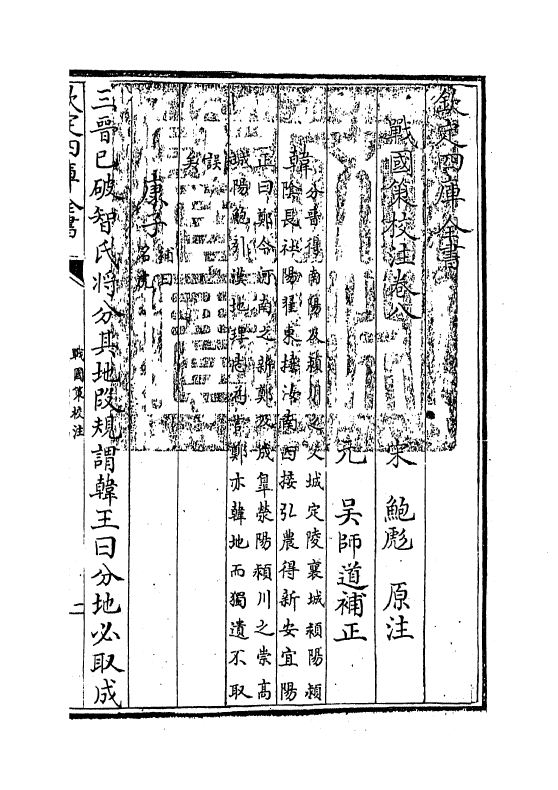 欽定四庫全書
戰國策校注卷八
宋 鮑彪 原注
元 吳師道補正
韓
分晉得南陽及潁川之父城定陵襄城潁陽潁
陰長社陽翟東接汝南西接弘農得新安宜陽
正曰鄭今河南之新鄭及成皐滎陽潁川之崇高
陽鮑引漢地理志鄭亦韓地而獨遺不取
誤
矣
康子
補曰
名虎
三晉已破智氏將分其地段規謂韓王曰分地必取成
欽定四庫全書
戰國策校注